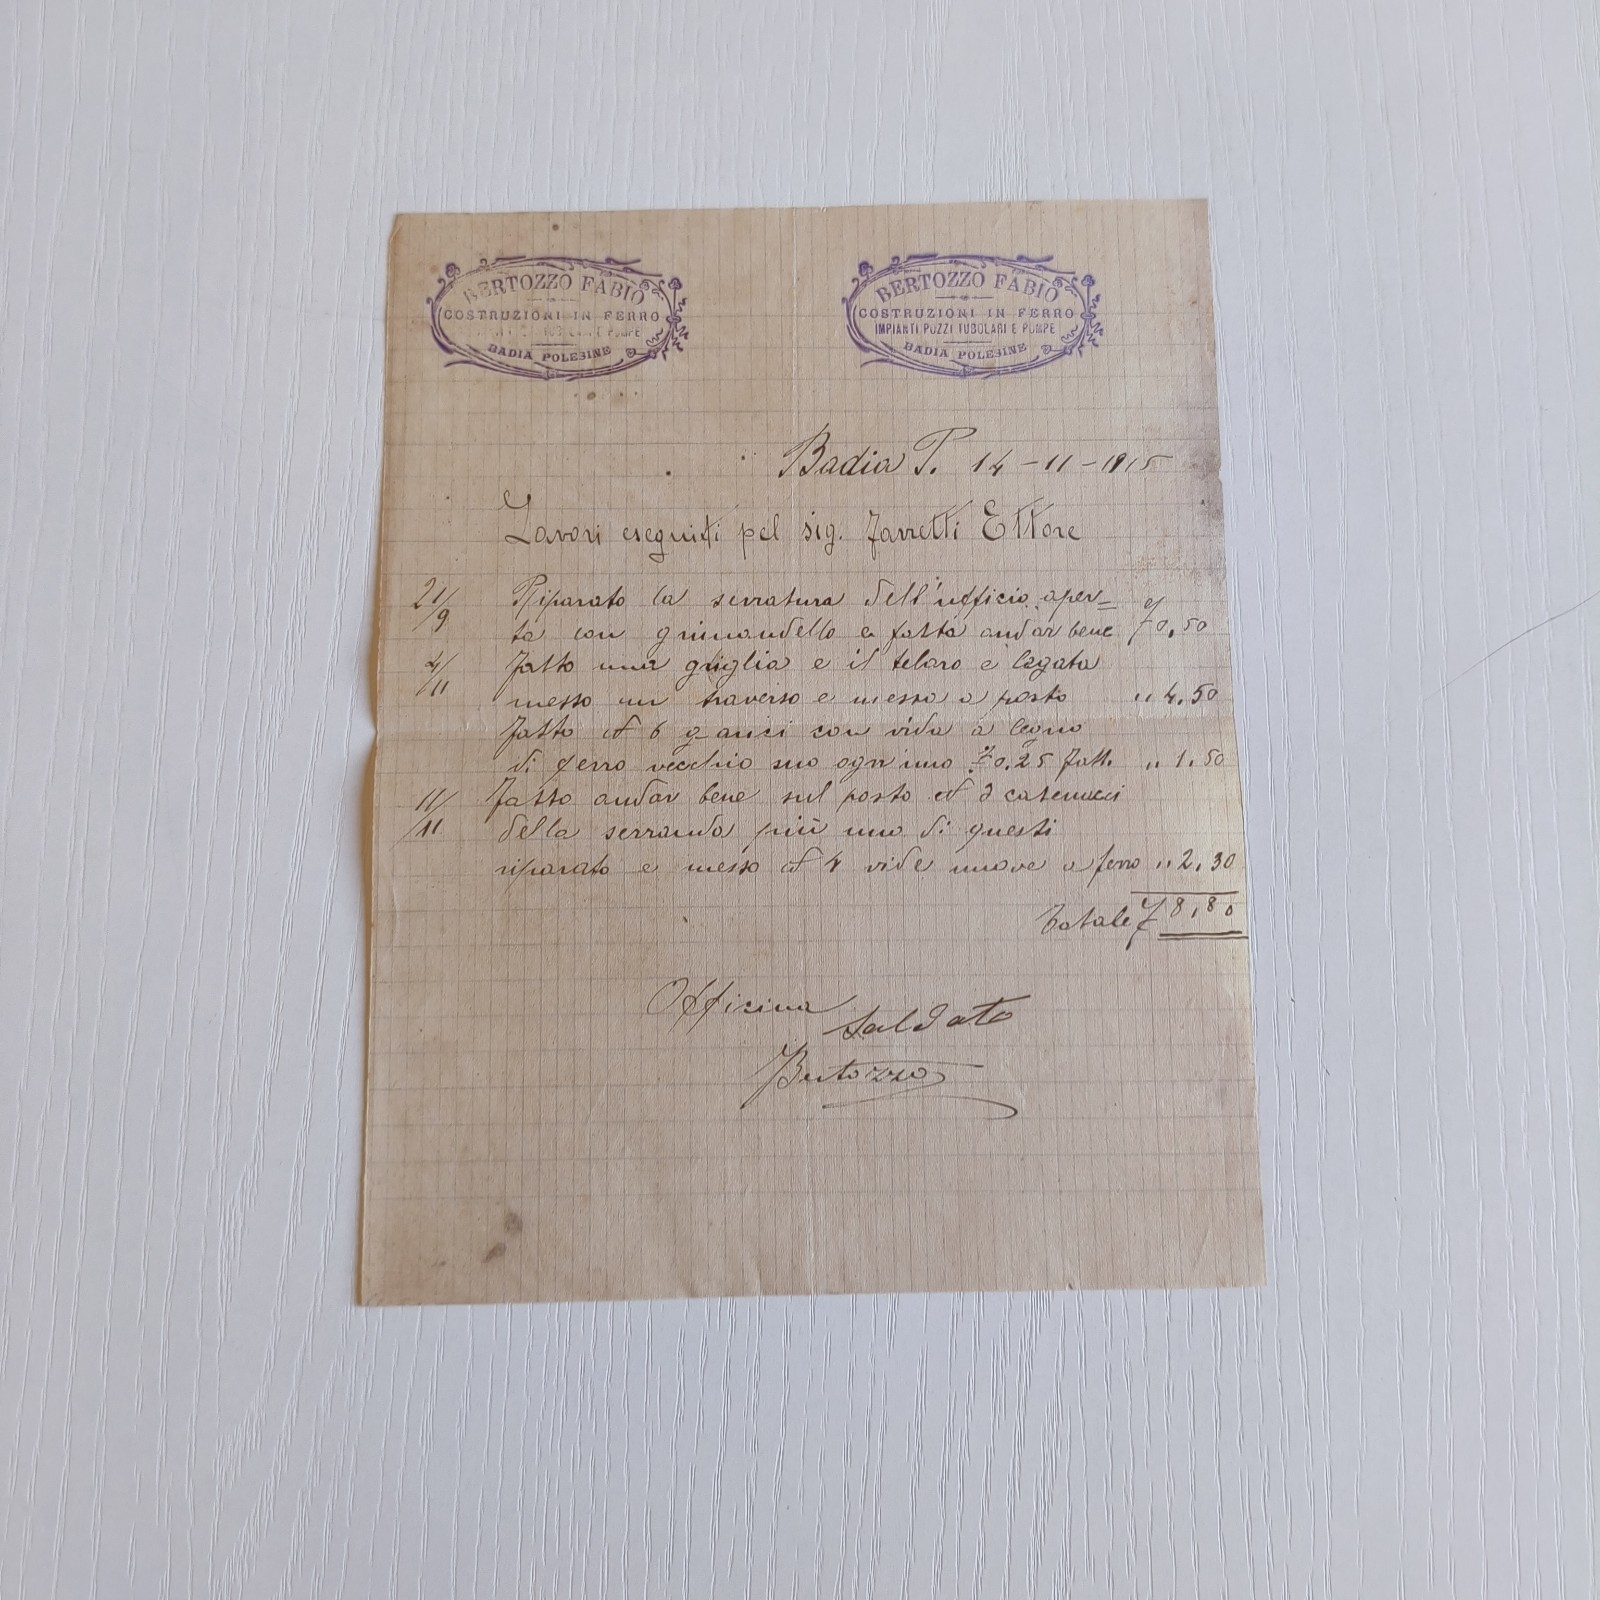 BERTOZZO FABIO
COSTRUZIONI IN FERRO
TUBOLARI E POMPE
BADIA POLESINE
BERTOZZO FABIO
COSTRUZIONI IN FERRO
IMPIANTI POZZI TUBOLARI E POMPE
BADIA POLESINE
Badia P. 14-11-1915
Lavori eseguiti pel sig. Zarretti Ettore
21/9 Riparato la serratura dell'ufficio aper=
ta con grimandello e fatta andar bene £ 0,50
4/11 fatto una griglia e il telaro e legata
messo un traverso e messa a posto „ 4,50
fatto N 6 ganci con vida a legno
di ferro vecchio suo ogni uno £ 0,25 fatt. „ 1,50
11/11 fatto andar bene sul posto N 2 catenacci
della serranda più uno di questi
riparato e messo N 4 vide nuove a ferro „ 2,30
Totale £ 8,80
Officina
Saldato
Bertozzo